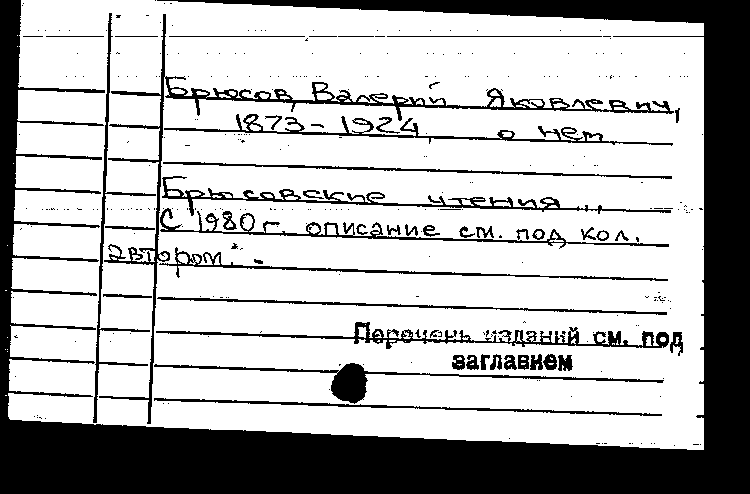 Брюсов, Валерий Яковлевич,
1873-1924, о нем.
Брюсовские чтения...
С 1980 г. описание см. под кол.
автором. -
Перечень изданий см. под
заглавием